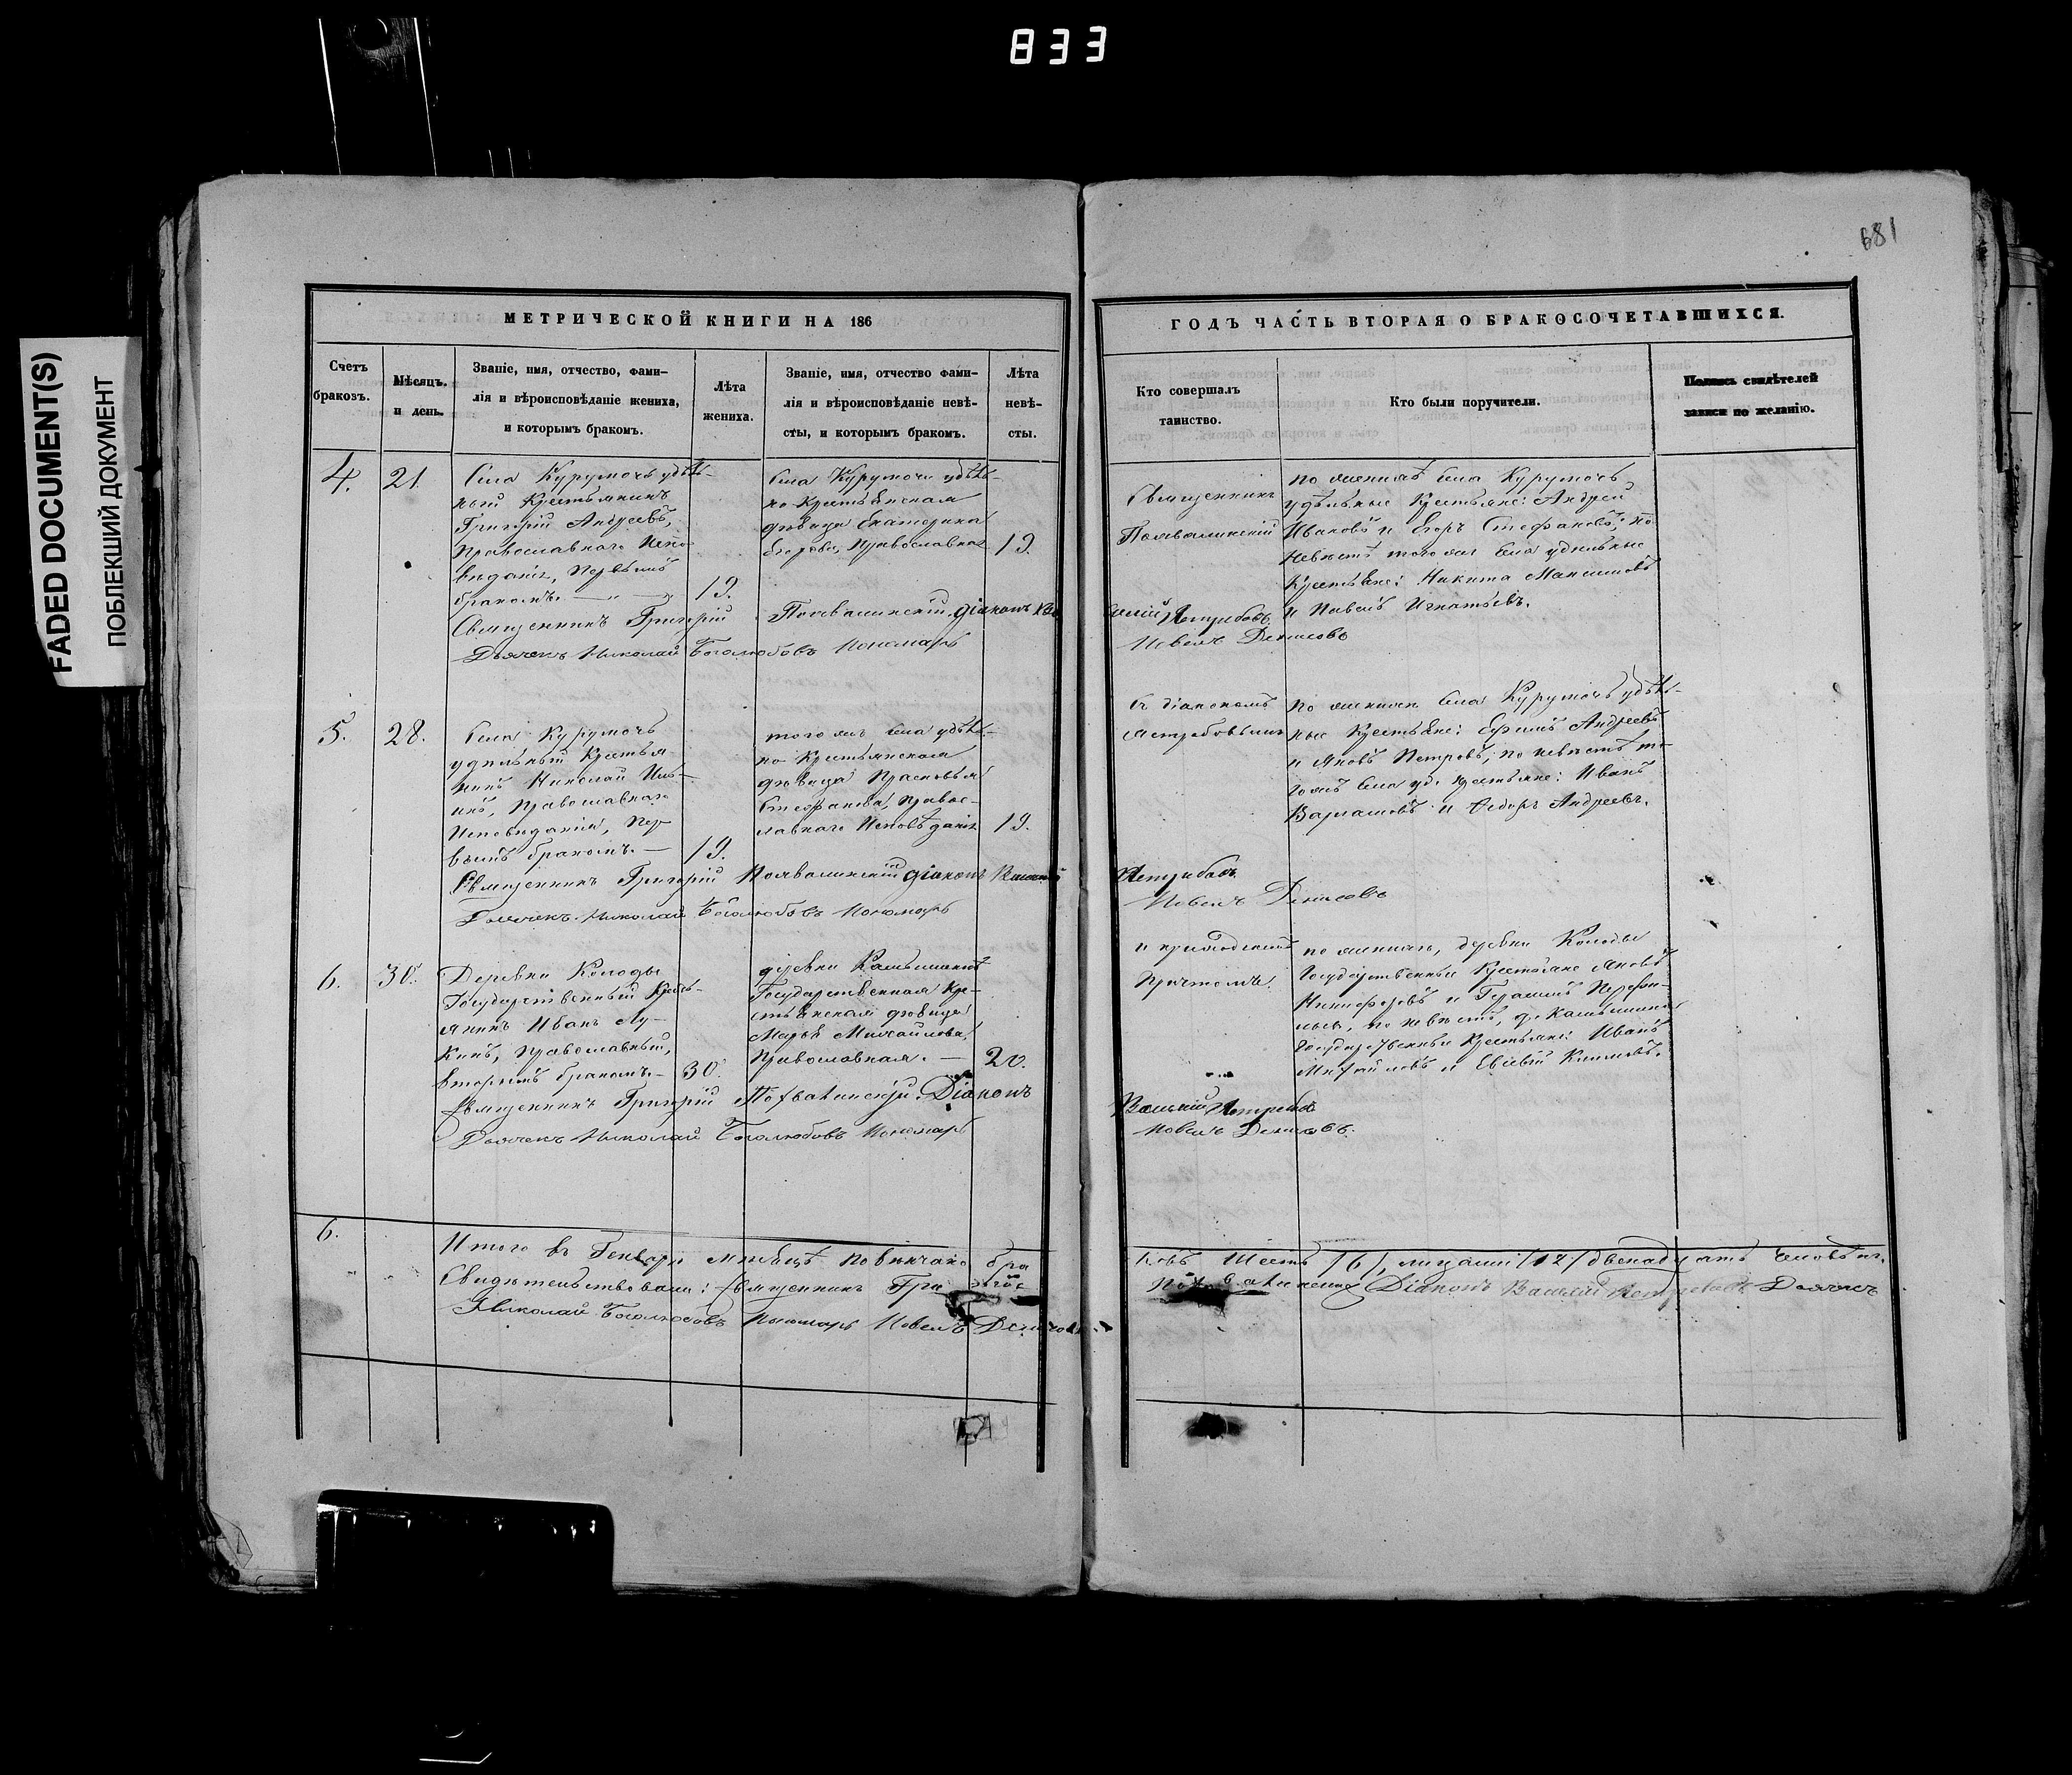 833
681
FADED DOCUMENT(S)
ПОБЛЕКШИЙ ДОКУМЕНТ
МЕТРИЧЕСКОЙ КНИГИ НА 186
Счетъ
браковъ.
Мѣсяцъ.
и день.
Званіе, имя, отчество, фами-
лія и вѣроисповѣданіе жениха,
и которымъ бракомъ.
Лѣта
жениха.
Званіе, имя, отчество фами-
лія и вѣроисповѣданіе невѣ-
сты, и которымъ бракомъ.
Лѣта
невѣ-
сты.
ГОДЪ ЧАСТЬ ВТОРАЯ О БРАКОСОЧЕТАВШИХСЯ.
Кто совершалъ
таинство.
Кто были поручители.
Подпись свидѣтелей
записи по желанію.
4.
21.
Села Курумочъ удѣль-
ный Крестьянинъ
Григорій Андреевъ,
Православнаго Испо-
вѣданія, первымъ
бракомъ. —
19.
Села Курумочи удѣль-
но-Крестьянская
дѣвица Екатерина
Егорова, Православная
19.
Священникъ
Похвалинскій
по женихѣ села Курумочь
удѣльные Крестьяне: Андрей
Ивановъ и Егоръ Стефановъ; по
невѣстѣ того же села удѣльные
Крестьяне: Никита Максимовъ
и Павелъ Игнатьевъ.
Священникъ Григорій Похвалинскій. Діаконъ Ва
силій Ястребовъ
Дьячекъ Николай Боголюбовъ Пономарь
Павелъ Денисовъ
5.
28.
Села Курумочъ
удѣльный Крестья-
нинъ Николай Иль-
инъ, Православнаго
Исповѣданія, Пер-
вымъ бракомъ. —
19.
того же села удѣль-
но Крестьянская
дѣвица Прасковья
Стефанова, Правос-
лавнаго Исповѣданія
19.
съ діакономъ
Ястребовымъ
по женихѣ села Курумочъ удѣль-
ные Крестьяне: Ефимъ Андреевъ
и Яковъ Петровъ; по невѣстѣ то-
гожъ села уд. крестьяне: Иванъ
Варламовъ и Ѳедоръ Андреевъ.
Священникъ Григорій Похвалинскій Діаконъ Василій
Ястребовъ
Дьячекъ Николай Боголюбовъ Пономарь
Павелъ Денисовъ
6.
30.
Деревни Колоды
Государственный Кресть-
янинъ Иванъ Лу-
кинъ, Православный,
вторымъ бракомъ. —
30.
деревни Камышинки
Государственная Кре-
стьянская дѣвица
Марья Михайлова,
Православная. —
20.
и приходскимъ
Причтомъ.
по женихѣ, деревни Колоды
Государственные Крестьяне Яковъ
Никифоровъ и Герасимъ
по невѣстѣ, д. Камышинки
Государственные Крестьяне: Иванъ
Михайловъ и Евсевій Климовъ.
Священникъ Григорій Похвалинскій. Діаконъ
Василій Ястребовъ
Дьячекъ Николай Боголюбовъ Пономарь
Павелъ Денисовъ.
6.
Итого въ Генварѣ мѣсяцѣ повѣнчано бра
ковъ Шесть /6/, лицами /12/ двенадцать человѣкъ.
Свидѣтельствовали: Священникъ Григорій
Похвалинскій Діаконъ Василій Ястребовъ Дьячекъ
Николай Боголюбовъ Пономарь Павелъ Денисовъ.